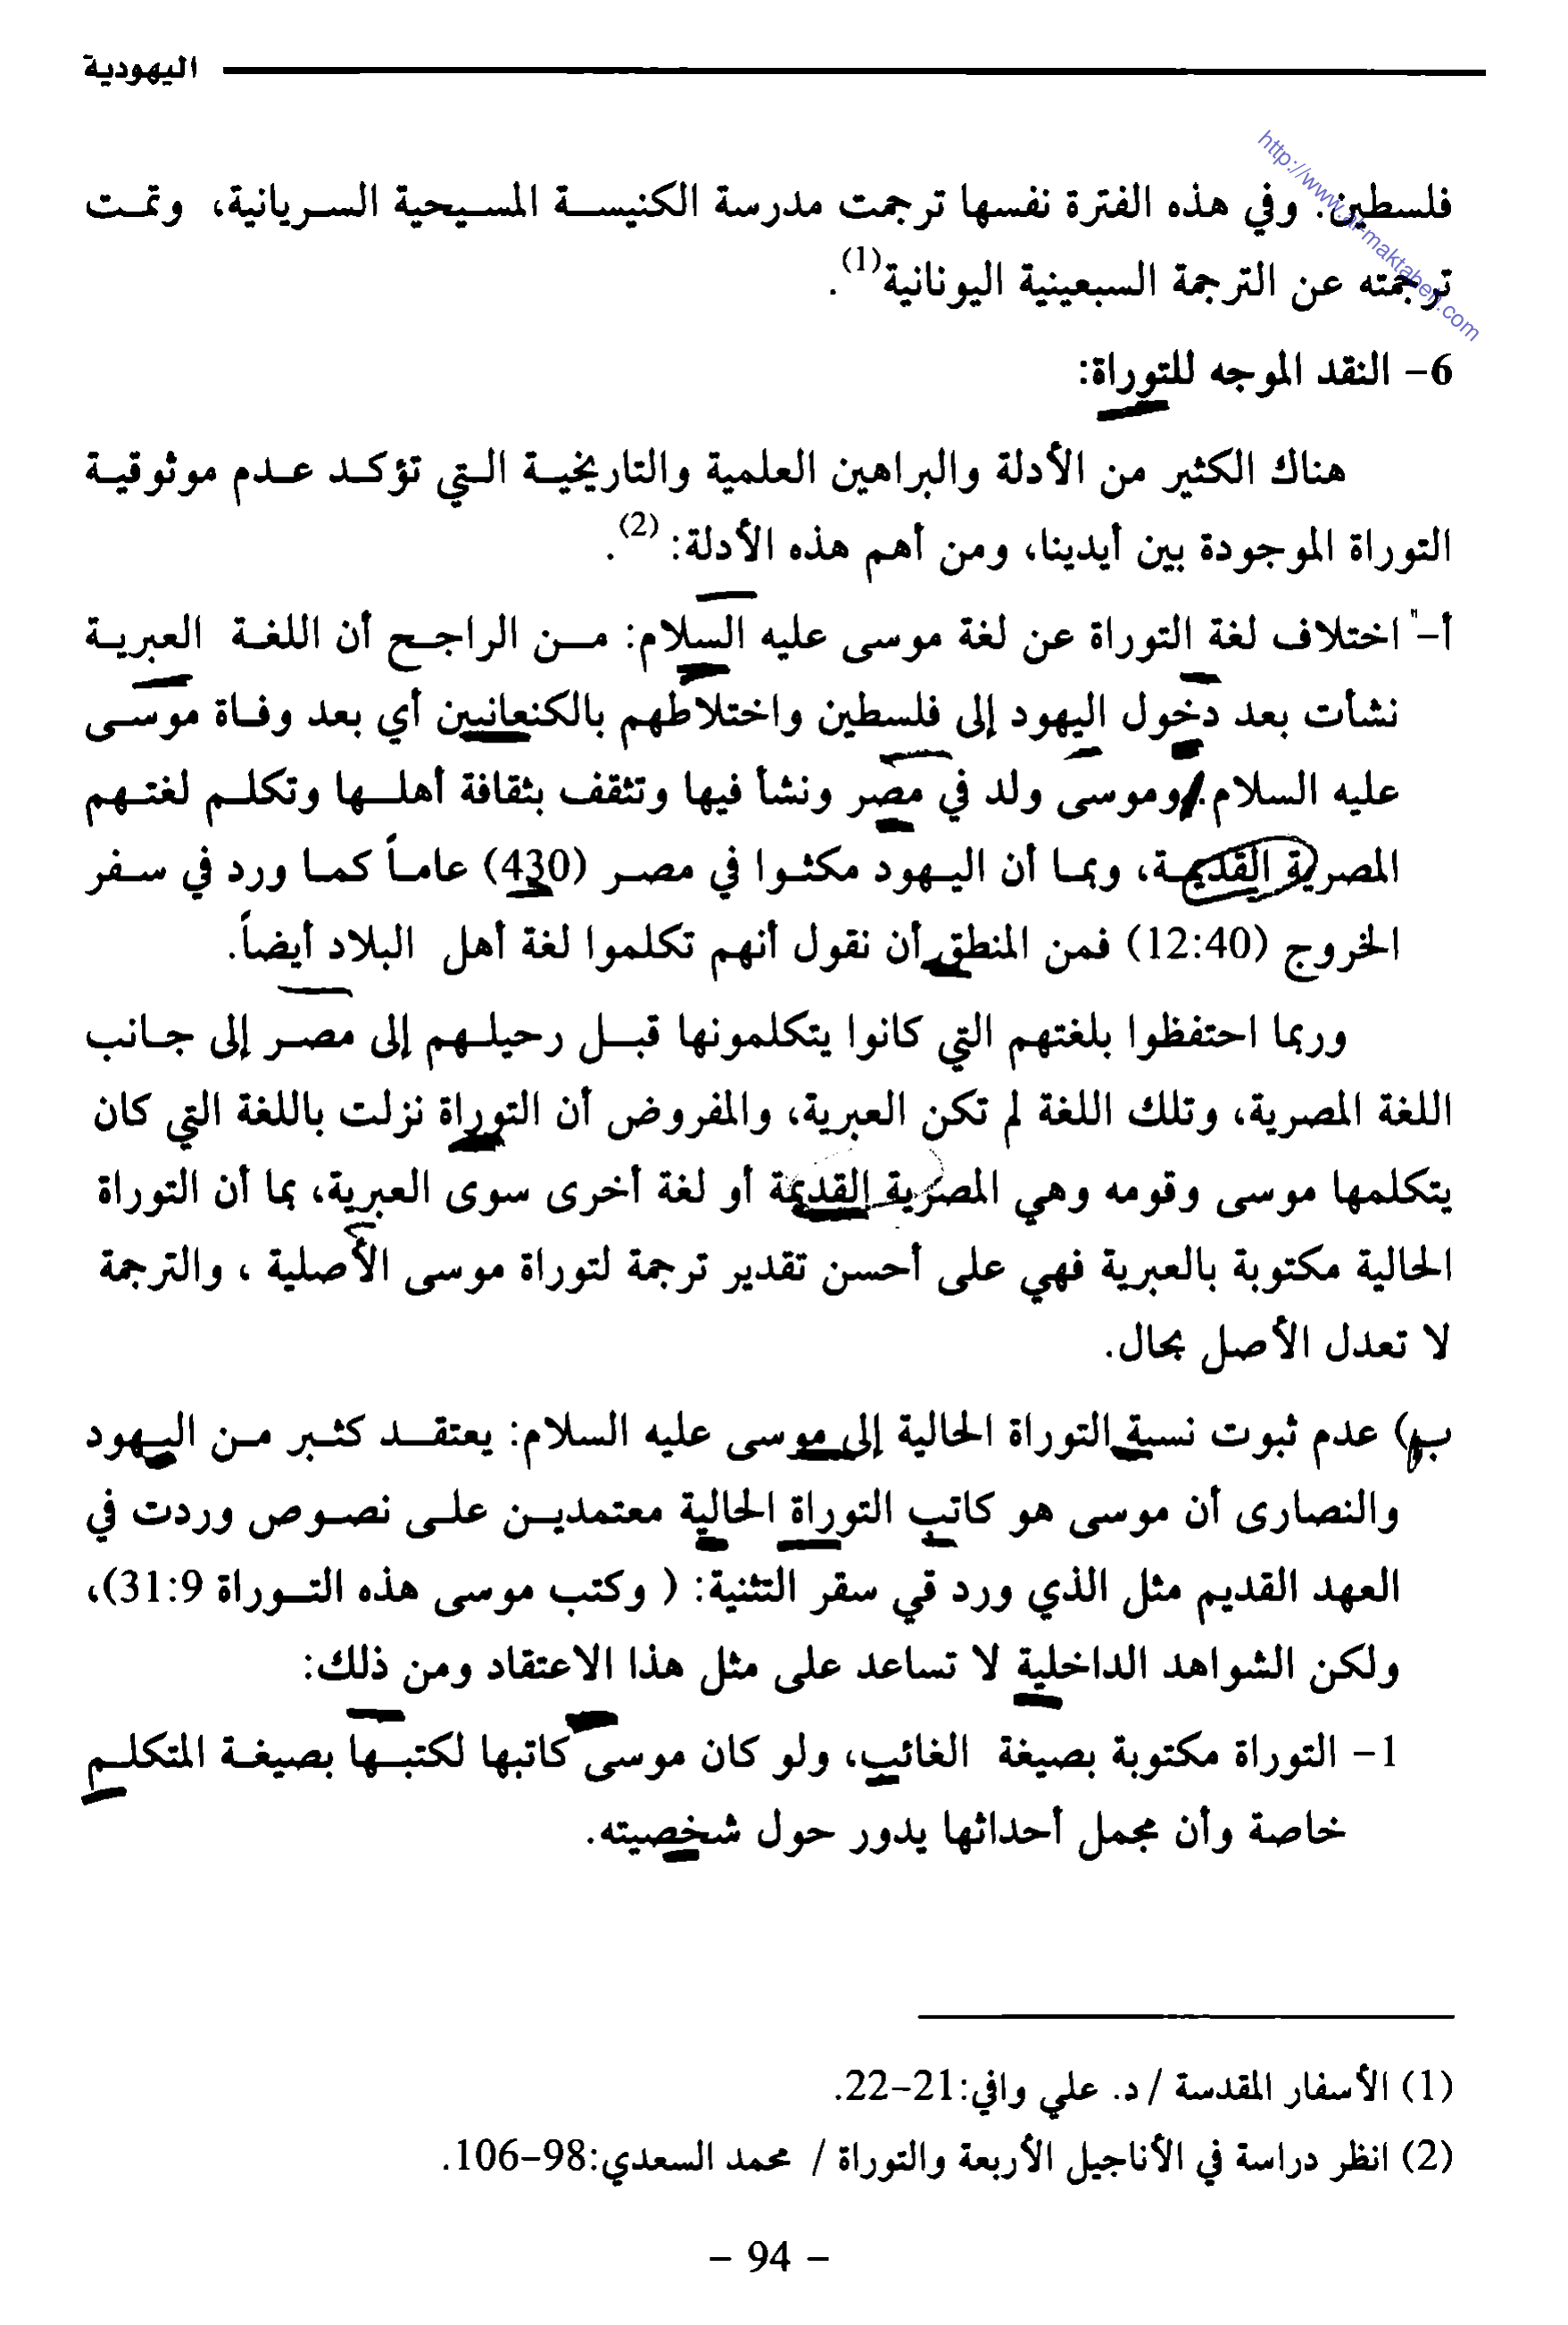 اليهودية
http://www.al-maktabeh.com
فلسطين. وفي هذه الفترة نفسها ترجمت مدرسة الكنيسة المسيحية السريانية، وتمت
ترجمته عن الترجمة السبعينية اليونانية(1).
6- النقد الموجه للتوراة:
هناك الكثير من الأدلة والبراهين العلمية والتاريخية التي تؤكد عدم موثوقية
التوراة الموجودة بين أيدينا، ومن أهم هذه الأدلة: (2).
أ- اختلاف لغة التوراة عن لغة موسى عليه السلام: من الراجح أن اللغة العبرية
نشأت بعد دخول اليهود إلى فلسطين واختلاطهم بالكنعانيين أي بعد وفاة موسى
عليه السلام. وموسى ولد في مصر ونشأ فيها وتثقف بثقافة أهلها وتكلم لغتهم
المصرية القديمة، وبما أن اليهود مكثوا في مصر (430) عاماً كما ورد في سفر
الخروج (12:40) فمن المنطق أن نقول أنهم تكلموا لغة أهل البلاد أيضاً.
وربما احتفظوا بلغتهم التي كانوا يتكلمونها قبل رحيلهم إلى مصر إلى جانب
اللغة المصرية، وتلك اللغة لم تكن العبرية، والمفروض أن التوراة نزلت باللغة التي كان
يتكلمها موسى وقومه وهي المصرية القديمة أو لغة أخرى سوى العبرية، بما أن التوراة
الحالية مكتوبة بالعبرية فهي على أحسن تقدير ترجمة لتوراة موسى الأصلية ، والترجمة
لا تعدل الأصل بحال.
ب) عدم ثبوت نسبة التوراة الحالية إلى موسى عليه السلام: يعتقد كثبر من اليهود
والنصارى أن موسى هو كاتب التوراة الحالية معتمدين على نصوص وردت في
العهد القديم مثل الذي ورد قي سقر التثنية: ( وكتب موسى هذه التوراة 31:9)،
ولكن الشواهد الداخلية لا تساعد على مثل هذا الاعتقاد ومن ذلك:
1- التوراة مكتوبة بصيغة الغائب، ولو كان موسى كاتبها لكتبها بصيغة المتكلم
خاصة وأن مجمل أحداثها يدور حول شخصيته.
(1) الأسفار المقدسة / د. علي وافي:21-22.
(2) انظر دراسة في الأناجيل الأربعة والتوراة / محمد السعدي:98-106.
- 94 -